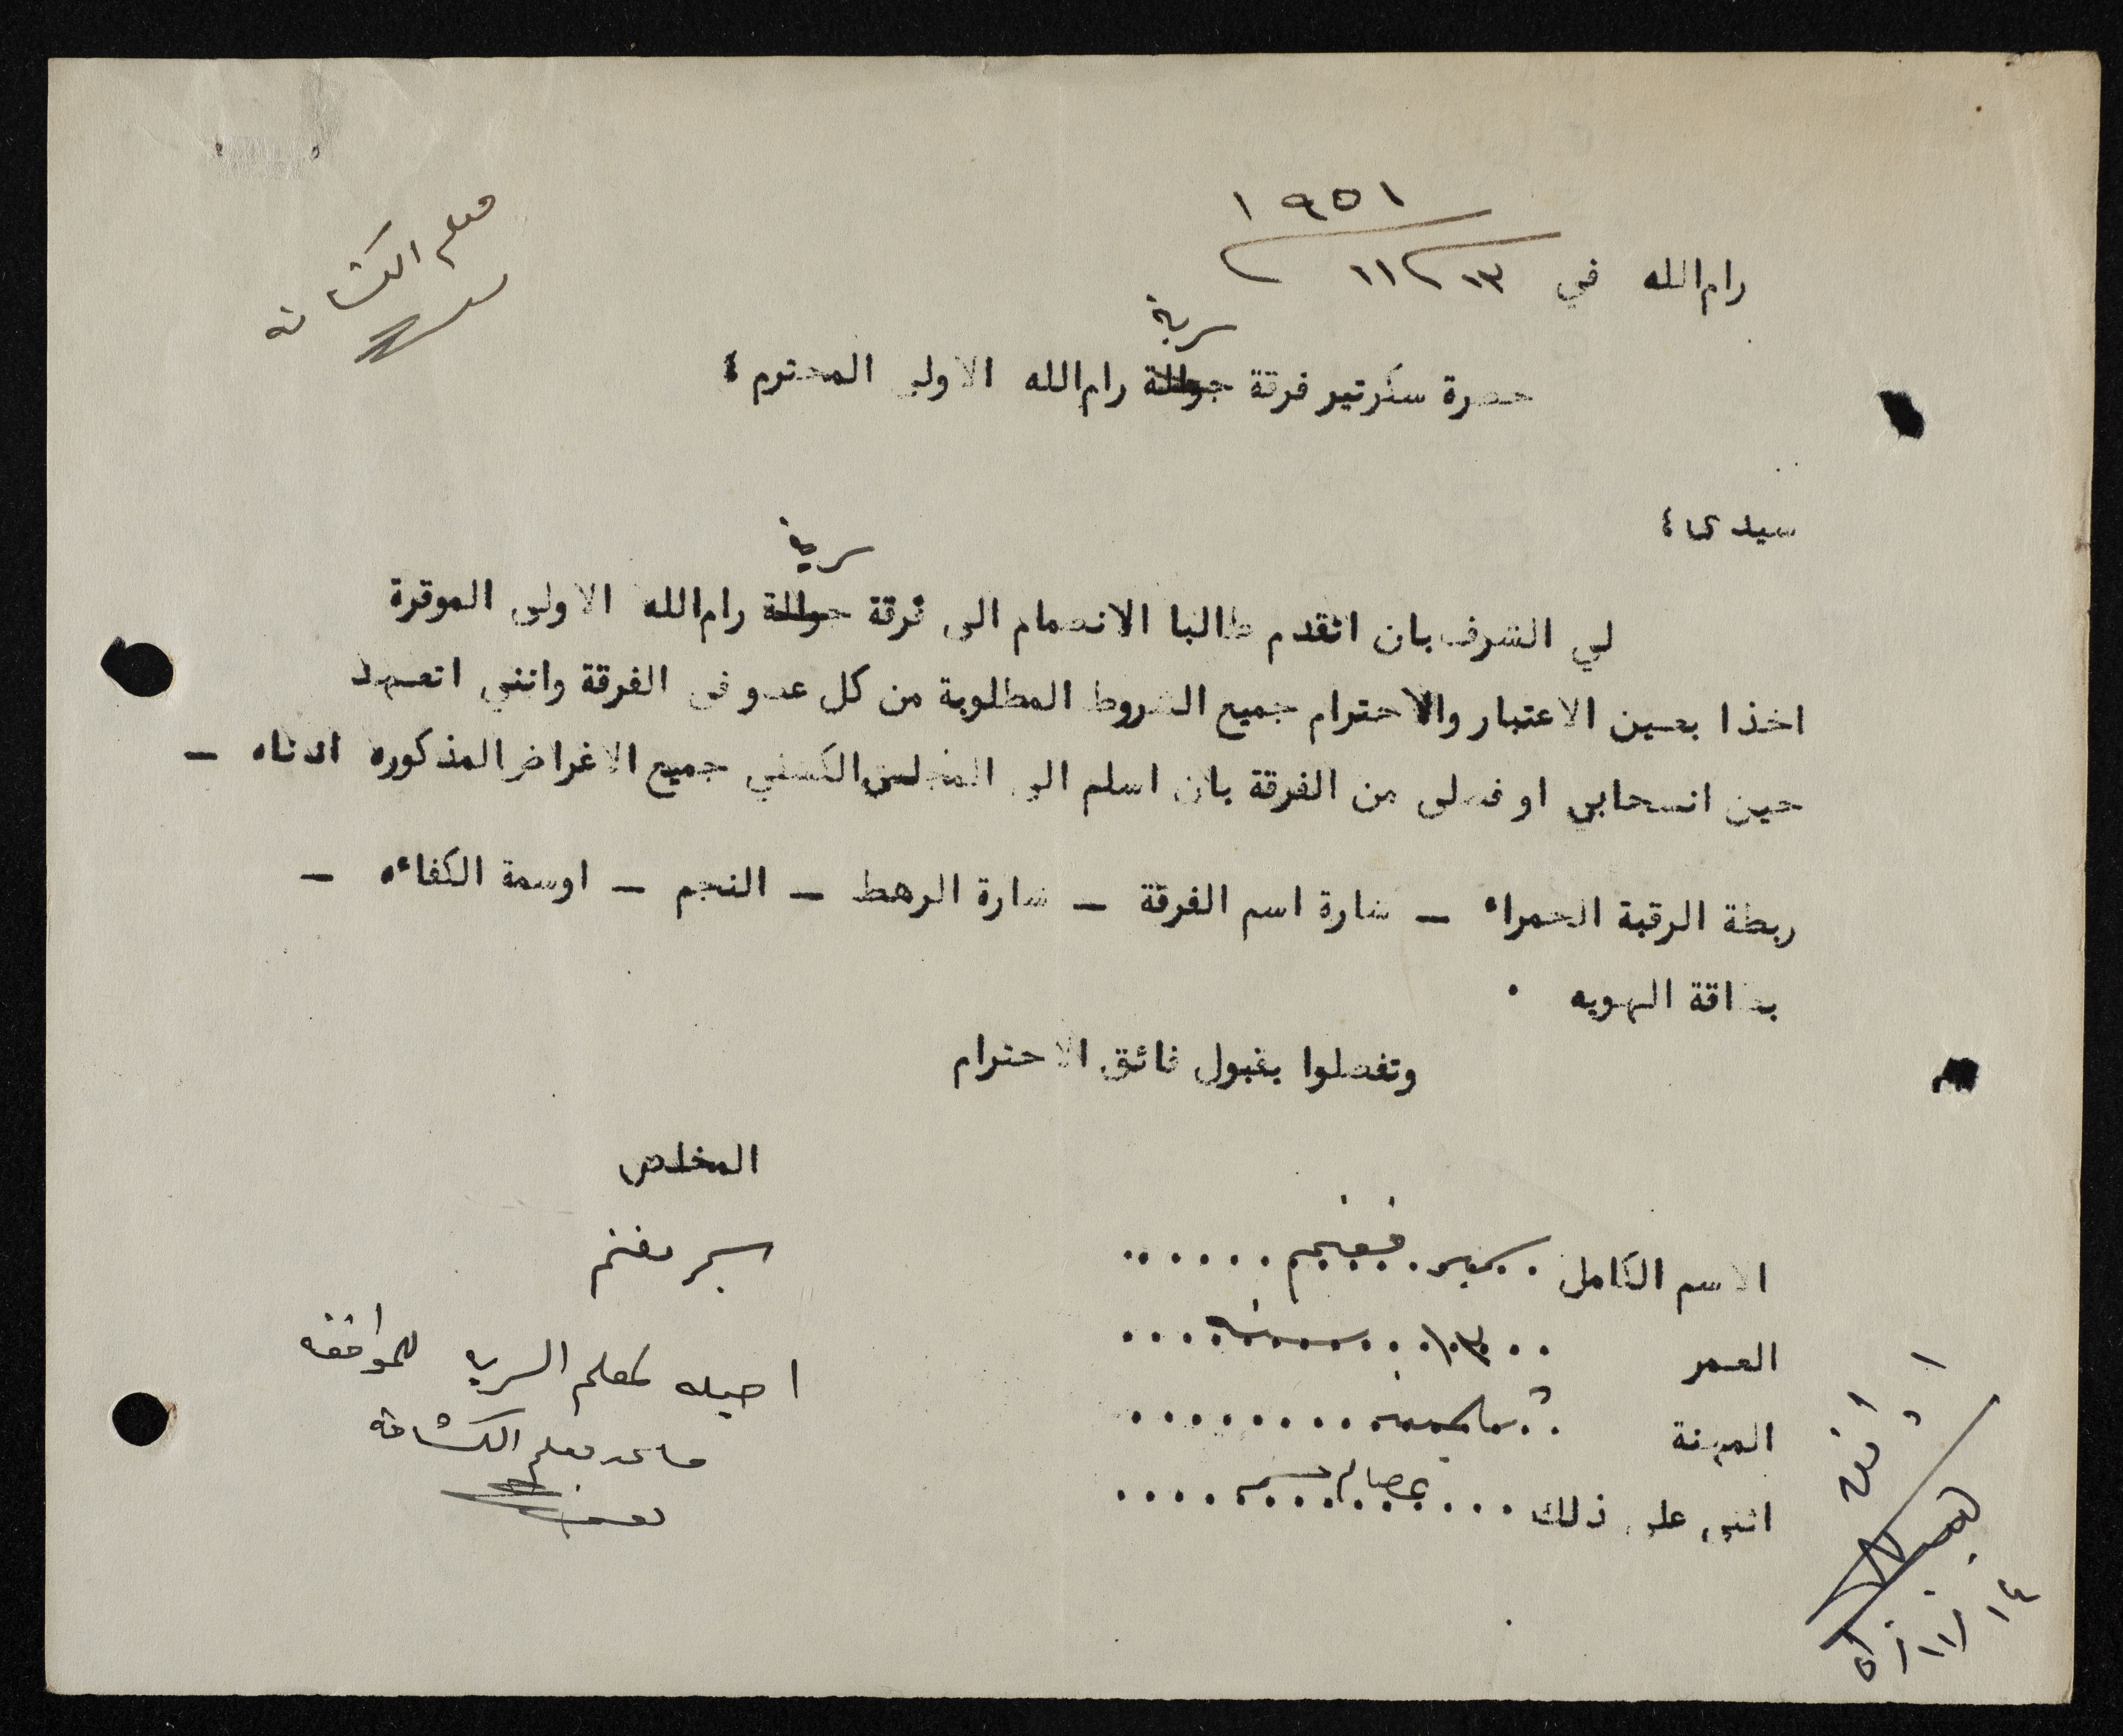 معلم الكشافة
١٩٥١
رام الله في ١٣ / ١١
سرية
حضرة سكرتير فرقة جوالة رام الله الاولى المحترم ؛
سيدى ؛
سرية
لي الشرف بان اتقدم طالبا الانضمام الى فرقة جوالة رام الله الاولى الموقرة
اخذا بعين الاعتبار والاحترام جميع الشروط المطلوبة من كل عضو فى الفرقة وانني اتعهد
حين انسحابي او فصلى من الفرقة بان اسلم الى المجلس الكشفي جميع الاغراض المذكوره ادناه —
ربطة الرقبة الحمراء — شارة اسم الفرقة — شارة الرهط — النجم — اوسمة الكفاءه —
بطاقة الهويه ٠
وتفضلوا بقبول فائق الاحترام
المخلص
الاسم الكامل
العمر ١٣ سنة
المهنة
اثنى على ذلك
احيله لمعلم السرية للموافقه
مساعد معلم الكشافه
اوافق
١٤ / ١١ / ٥١